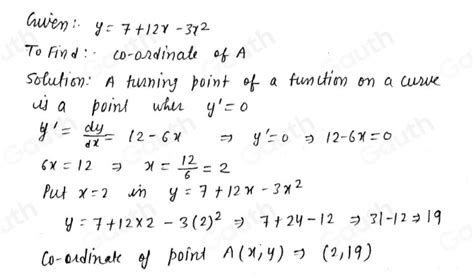 Given:- y = 7+12x-3x²
To Find:- co-ordinate of A
Solution: A turning point of a function on a curve
is a point wher y'=0
y' = dy/dx = 12-6x ⇒ y'=0 ⇒ 12-6x=0
6x = 12 ⇒ x = 12/6 = 2
Put x=2 in y = 7+12x-3x²
y = 7+12×2-3(2)² ⇒ 7+24-12 ⇒ 31-12 ⇒ 19
Co-ordinate of point A(x,y) ⇒ (2,19)